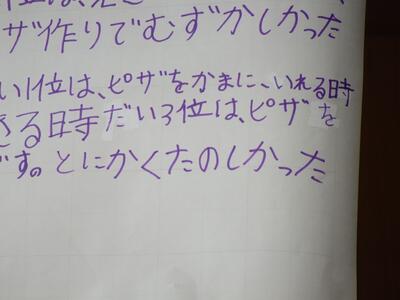 位は、
ザ作りでむずかしかった
い1位は、ピザをかまに、いれる時
きる時だい3位は、ピザを
です。とにかくたのしかった